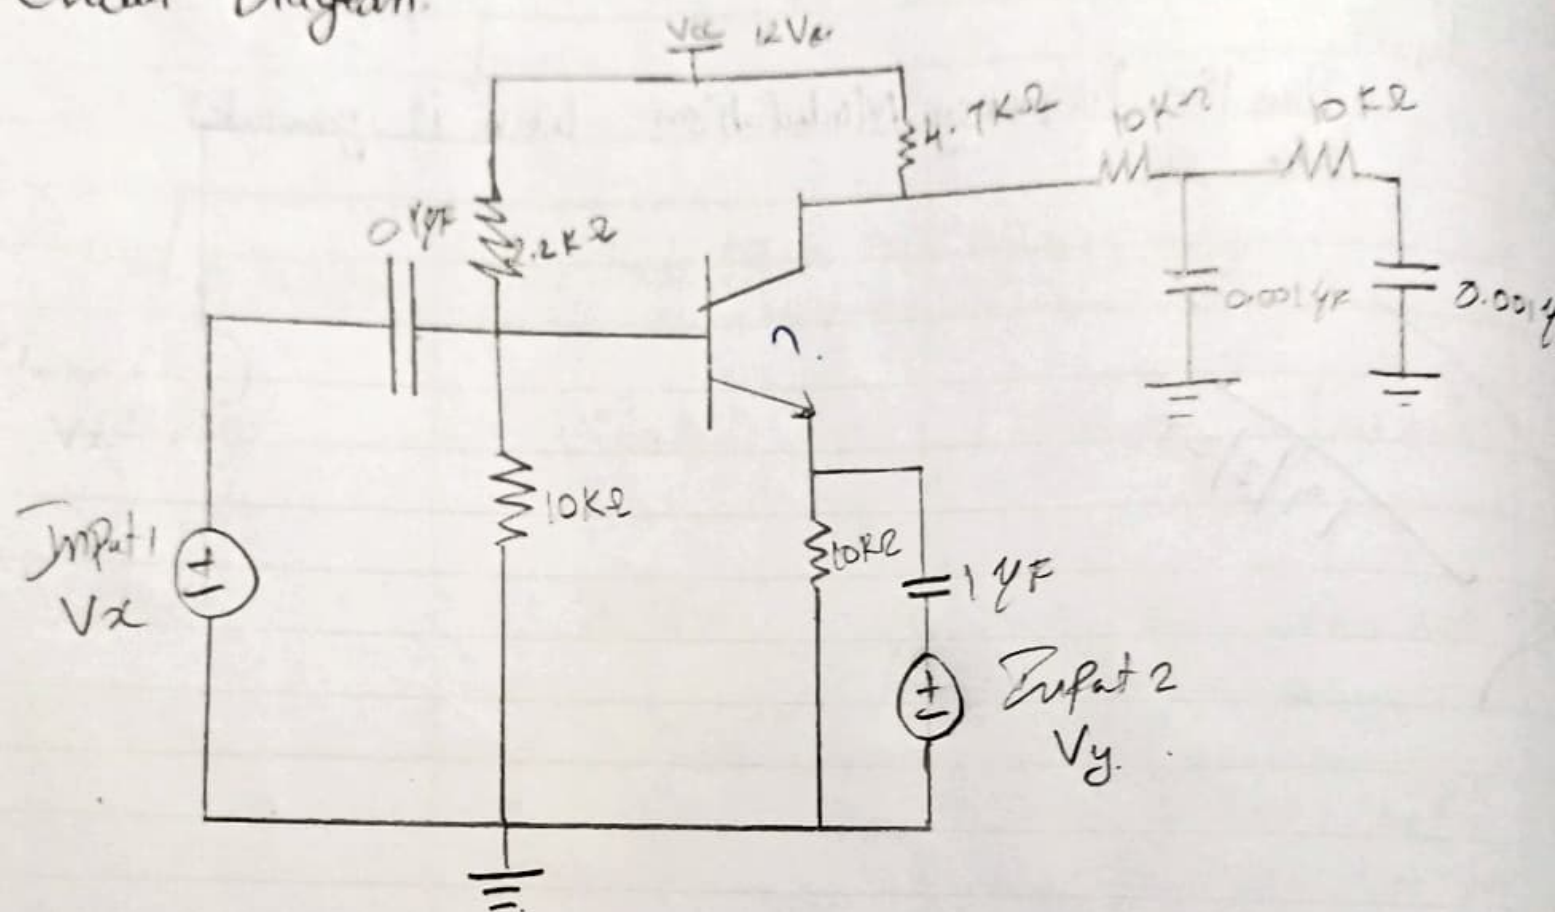 Circuit Diagram.
Vcc 12Vdc
4.7KΩ
10KΩ
10KΩ
0.1μF
2.2KΩ
0.001μF
0.001μ
10KΩ
10KΩ
1μF
Input 1
Vx
Input 2
Vy.